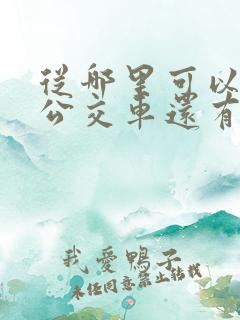 從哪里可以
公交車還有
我愛鴨子
未经同意禁止转载